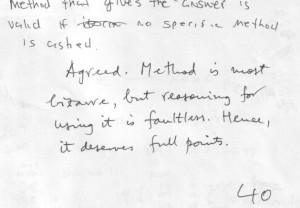 Method that gives the answer is
valid if no specific method
is asked.
Agreed. Method is most
bizarre, but reasoning for
using it is faultless. Hence,
it deserves full points.
40